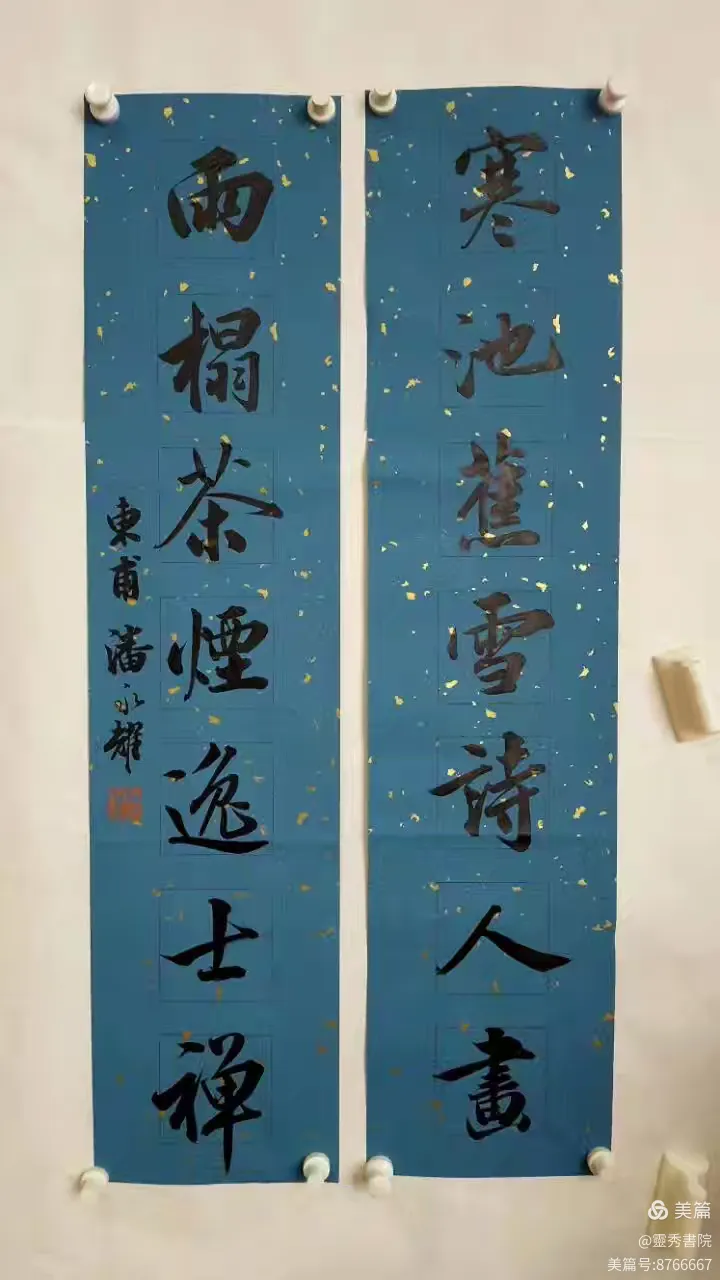 寒池蕉雪詩人畫
雨榻茶煙逸士禅
東甫潘永耀
美篇
@靈秀書院
美篇号:8766667